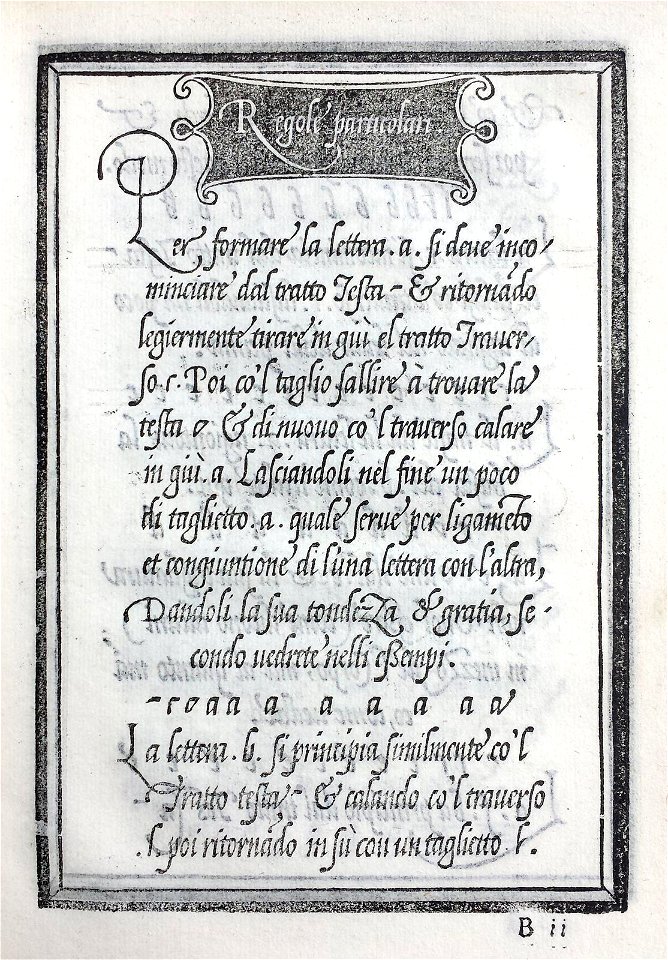 Regole particolari
Per formare la lettera .a. si deve inco-
minciare dal tratto Testa - & ritornādo
legiermente tirare in giù el tratto Traver-
so .c. Poi co'l taglio sallire à trovare la
testa o & di nuovo co'l traverso calare
in giù .a. Lasciandoli nel fine un poco
di taglietto .a. quale serve per ligamēto
et congiuntione di l'una lettera con l'altra,
Dandoli la sua tondezza & gratia, se-
condo vedrete nelli essempi.
- c o a a a a a a a a
La lettera .b. si principia similmente co'l
Tratto testa - & calando co'l traverso
.l. poi ritornādo in sù con un taglietto
B ii